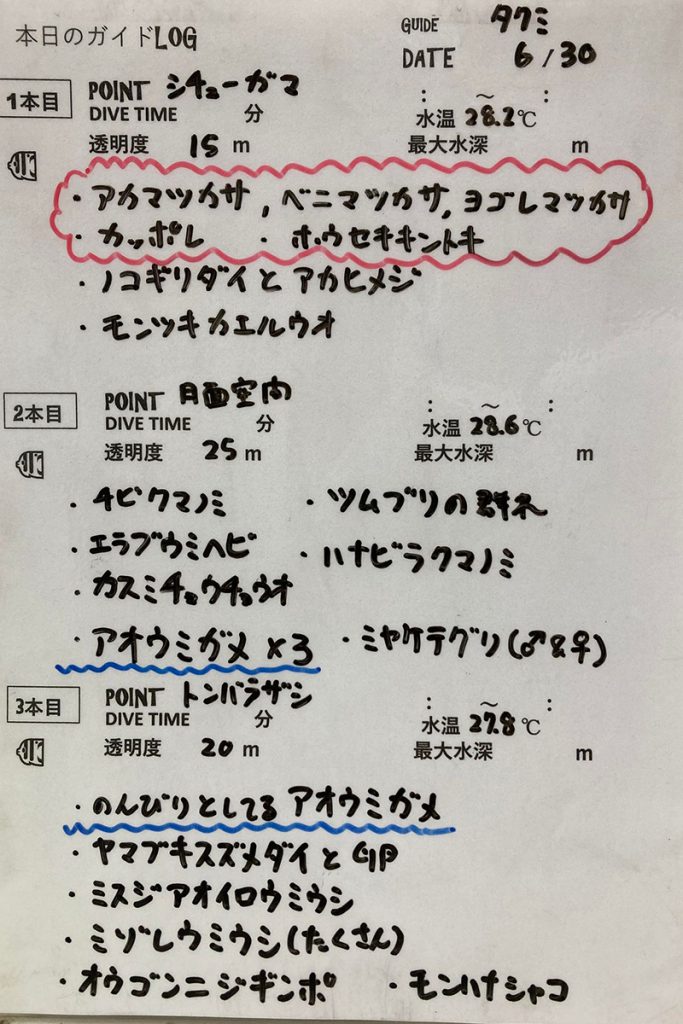 本日のガイドLOG
GUIDE タクミ
DATE 6/30
1本目 POINT シチューガマ : ～ :
DIVE TIME 分 水温 28.2℃
透明度 15 m 最大水深 m
・アカマツカサ, ベニマツカサ, ヨゴレマツカサ
・カッポレ ・ホウセキキントキ
・ノコギリダイとアカヒメジ
・モンツキカエルウオ
2本目 POINT 月面空間 : ～ :
DIVE TIME 分 水温 28.6℃
透明度 25 m 最大水深 m
・チビクマノミ ・ツムブリの群れ
・エラブウミヘビ ・ハナビラクマノミ
・カスミチョウチョウオ
・アオウミガメ×3 ・ミヤケテグリ(♂&♀)
3本目 POINT トンバラザシ : ～ :
DIVE TIME 分 水温 27.8℃
透明度 20 m 最大水深 m
・のんびりとしてるアオウミガメ
・ヤマブキスズメダイとyg
・ミスジアオイロウミウシ
・ミゾレウミウシ(たくさん)
・オウゴンニジギンポ ・モンハナシャコ